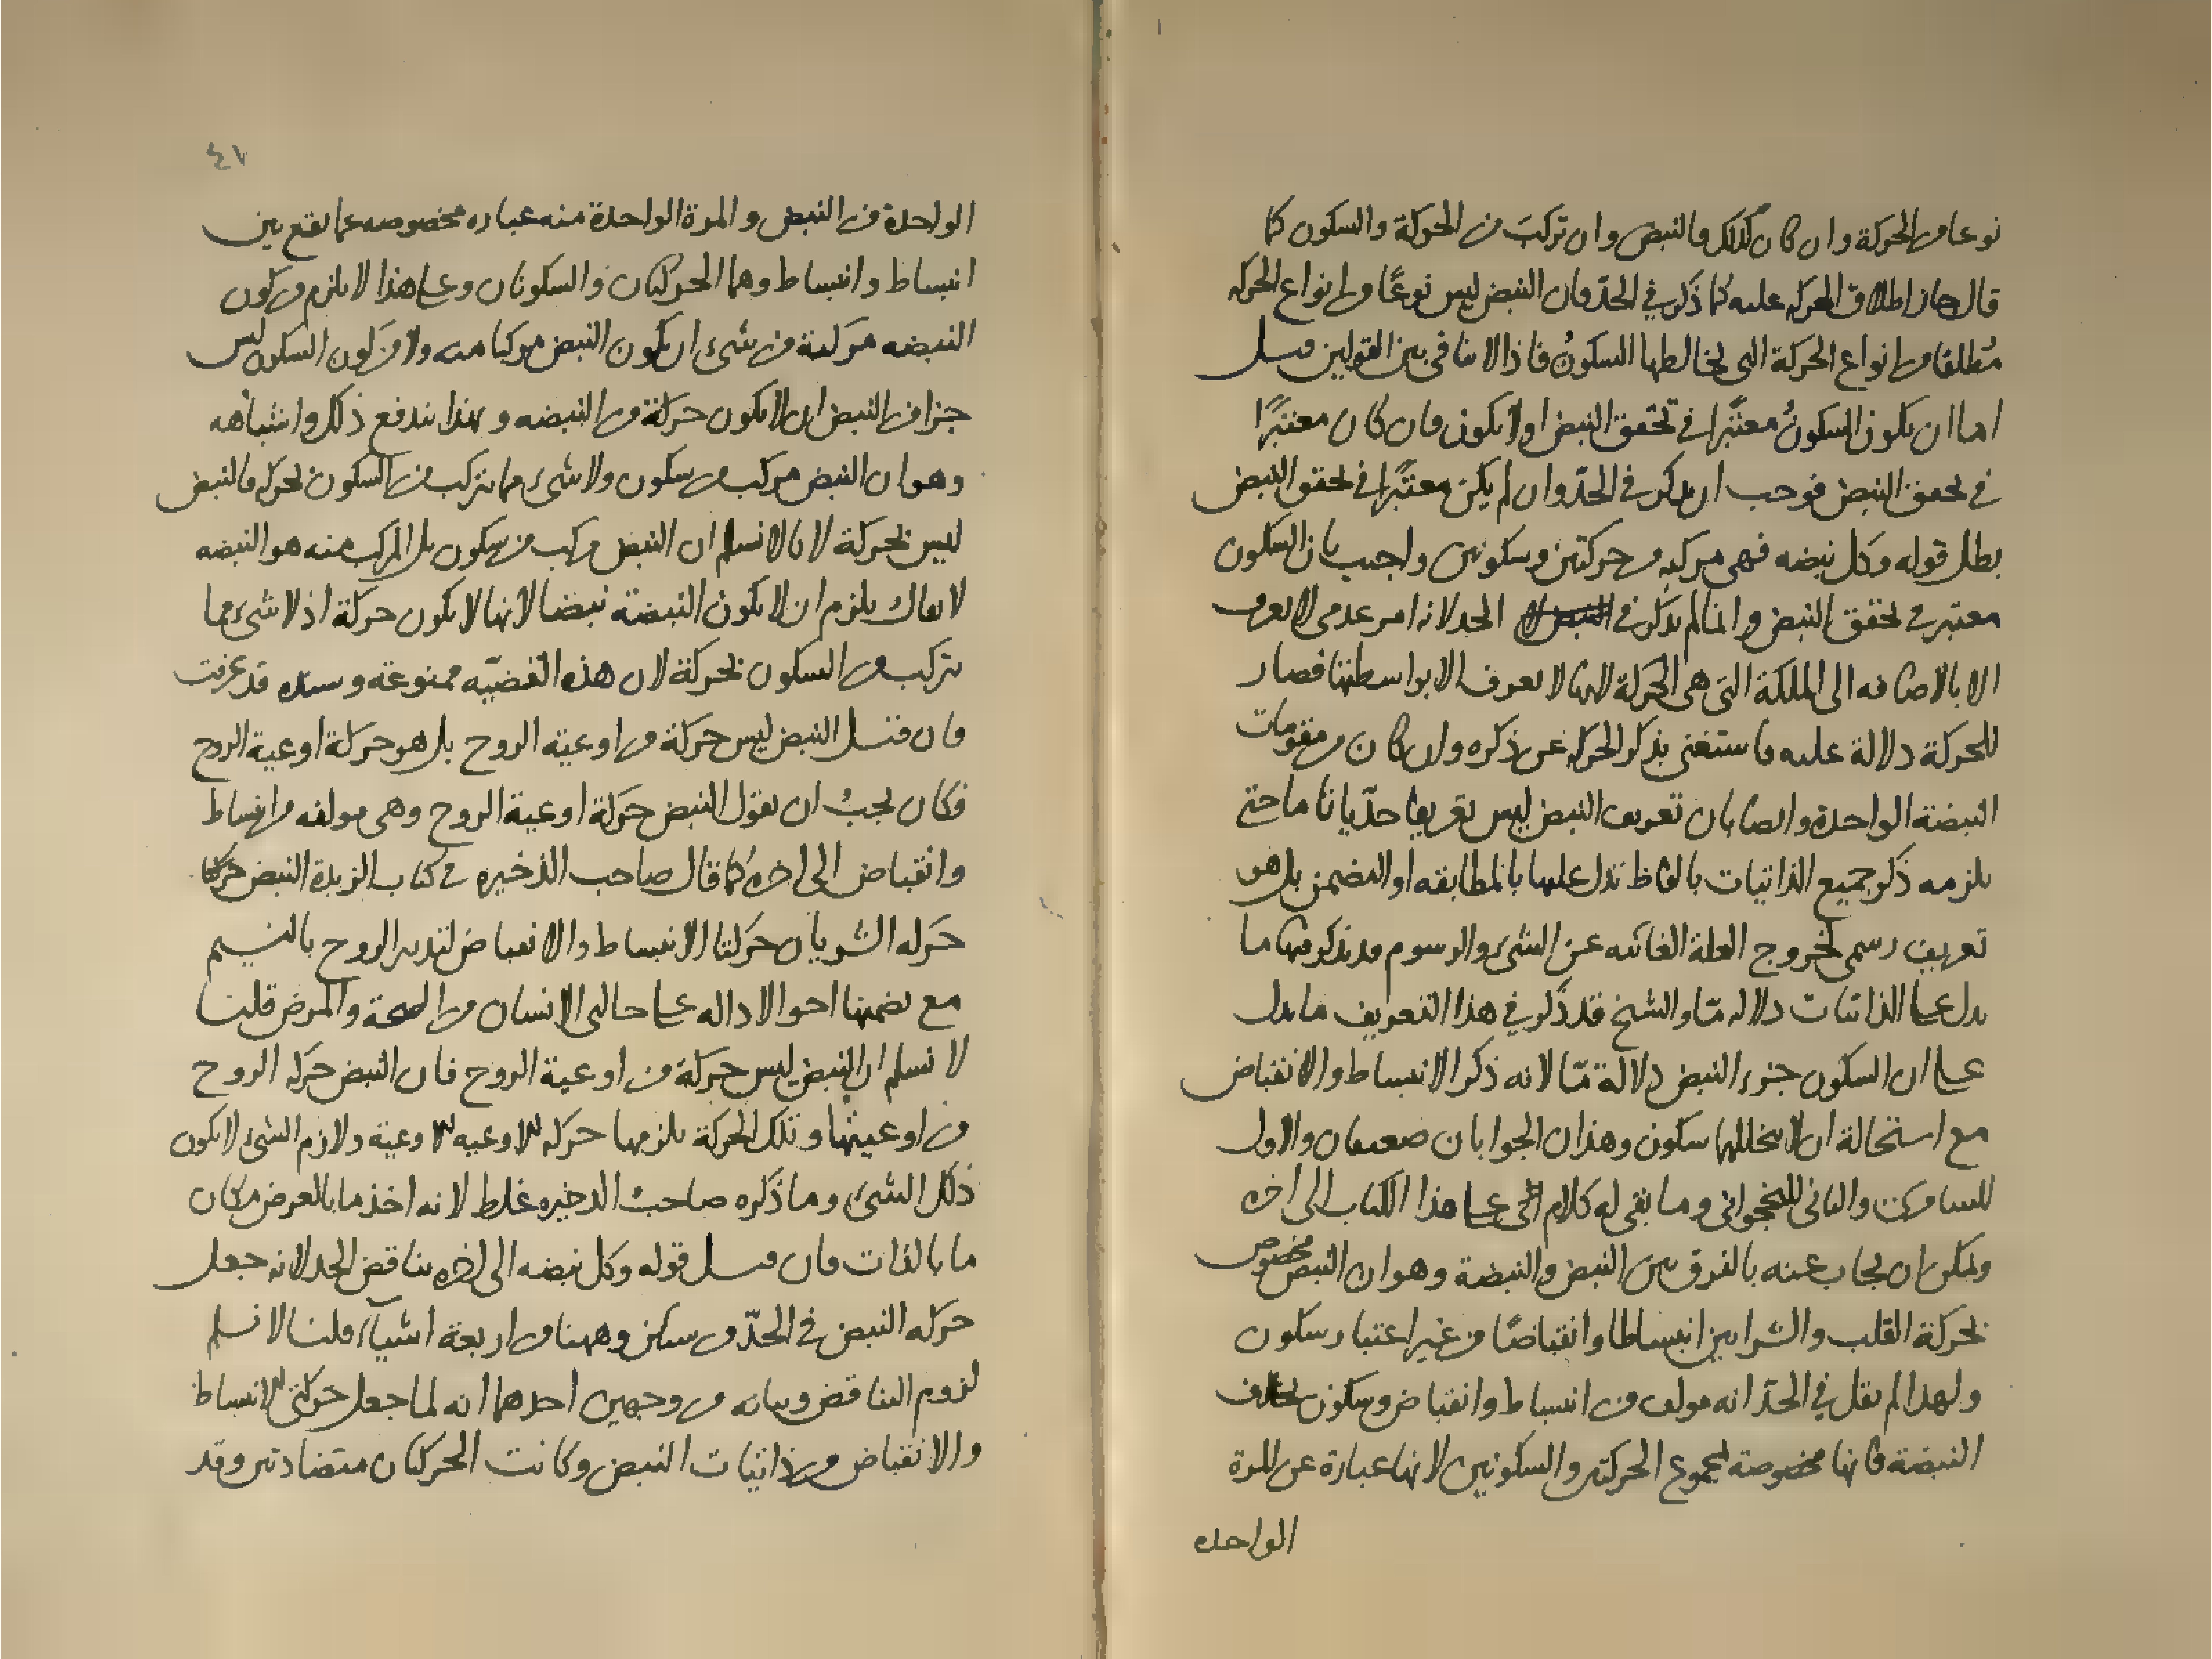 نوعا من الحركة وان كان كذلك فالنبض وان تركبَ من الحركة والسكون كما
قال جاز اطلاق الحركه عليه كما ذكر في الحدّ فان النبض ليس نوعًا من انواع الحركه
مُطلقا من انواع الحركة التى يخالطها السكونُ فاذا لا تنافى بين القولين قيل
اما ان يكون السكونُ معتبَرا في تحقق النبض او لا يكون فان كان معتبَرًا
في تحقق النبض فوجب ان يذكر في الحدّ وان لم يكن معتبَرًا في تحقق النبض
بطل قوله وكل نبضه فهى مركبه من حركتين وسكونين واجيب بان السكون
معتبر في تحقق النبض وانما لم يذكر في الحد لانه امر عدمى لا يعرف
الا بالاضافه الى الملكة التى هى الحركة لانها لا يعرف الا بواسطتها فصار
للحركة دلالة عليه فاستغنى بذكر الحركه عن ذكره وان كان من مقومات
النبضة الواحدة وايضا بان تعريف النبض ليس تعريفا حدّيا تاما حتى
يلزمه ذكر جميع الذاتيات بالفاظ تدل عليها بالمطابقه او التضمن بل هو
تعريف رسمى لخروج العلة الغائيه عن الشىء والرسوم قد يذكر فيها ما
يدل على الذاتيات دلاله مّا والشيخ قد ذكر في هذا التعريف ما يدل
على ان السكون جزء النبض دلالة مّا لانه ذكر الانبساط والانقباض
مع استحالة ان لا يتخللها سكون وهذان الجوابان ضعيفان والاول
للسامرى والثانى للنخجوانى وما بقى له كلام على هذا الكتاب الى اخره
ويمكن ان يجاب عنه بالفرق بين النبض والنبضة وهو ان النبض مخصوص
بحركة القلب والشرايين انبساطا وانقباضًا من غير اعتبار سكون
ولهذا لم يقل في الحدّ انه مولف من انبساط وانقباض وسكون بخلاف
النبضة فانها مخصوصة بمجموع الحركتين والسكونين لانها عبارة عن المرة
الواحده
٤١
الواحدة من النبض والمرة الواحدة منه عباره مخصوصه عما يقع بين
انبساط وانبساط وهما الحركتان والسكونان وعلى هذا لا يلزم من كون
النبضه مركبة من شىء ان يكون النبض مركبا منه ولا من كون السكون ليس
جزا من النبض ان لا يكون حركة من النبضه وبهذا يندفع ذلك واشباهه
وهو ان النبض مركب من سكون ولا شىء مما يتركب من السكون بحركه فالنبض
ليس بحركة لانا لا نسلم ان النبض مركب من سكون بل المركب منه هو النبضه
لا يقال يلزم ان لا يكون النبضة نبضا لانها لا يكون حركة اذ لا شىء مما
يتركب من السكون بحركة لان هذه القضيّه ممنوعة وسنده قد عرفت
فان قيل النبض ليس حركة من اوعية الروح بل هو حركة اوعية الروح
فكان يجبُ ان يقول النبض حركة اوعية الروح وهى مولفه من انبساط
وانقباض الى اخره كما قال صاحب الذخيره في كتاب الزبدة النبض حركتا
حَركه الشريان حركتا الانبساط والانقباض لتدبير الروح بالنسيم
مع تضمنها احوالا داله على حالتى الانسان من الصحة والمرض قلت
لا نسلم ان النبض ليس حركة من اوعية الروح فان النبض حركه الروح
من اوعيتها وتلك الحركة يلزمها حركه الاوعيه الاوعية ولازم الشىء لا يكون
ذلك الشىء وما ذكره صاحبُ الذخيره غلط لانه اخذ ما بالعرض مكان
ما بالذات فان قيل قوله وكل نبضه الى اخره يناقض الحد لانه جعل
حركه النبض في الحدّ من سكن وههنا من اربعة اشيآء قلنا لا نسلم
لزوم التناقض وبيانه من وجهين احدهما انه لما جعل حركتى الانبساط
والانقباض من ذاتيات النبض وكانت الحركتان متضادتين وقد